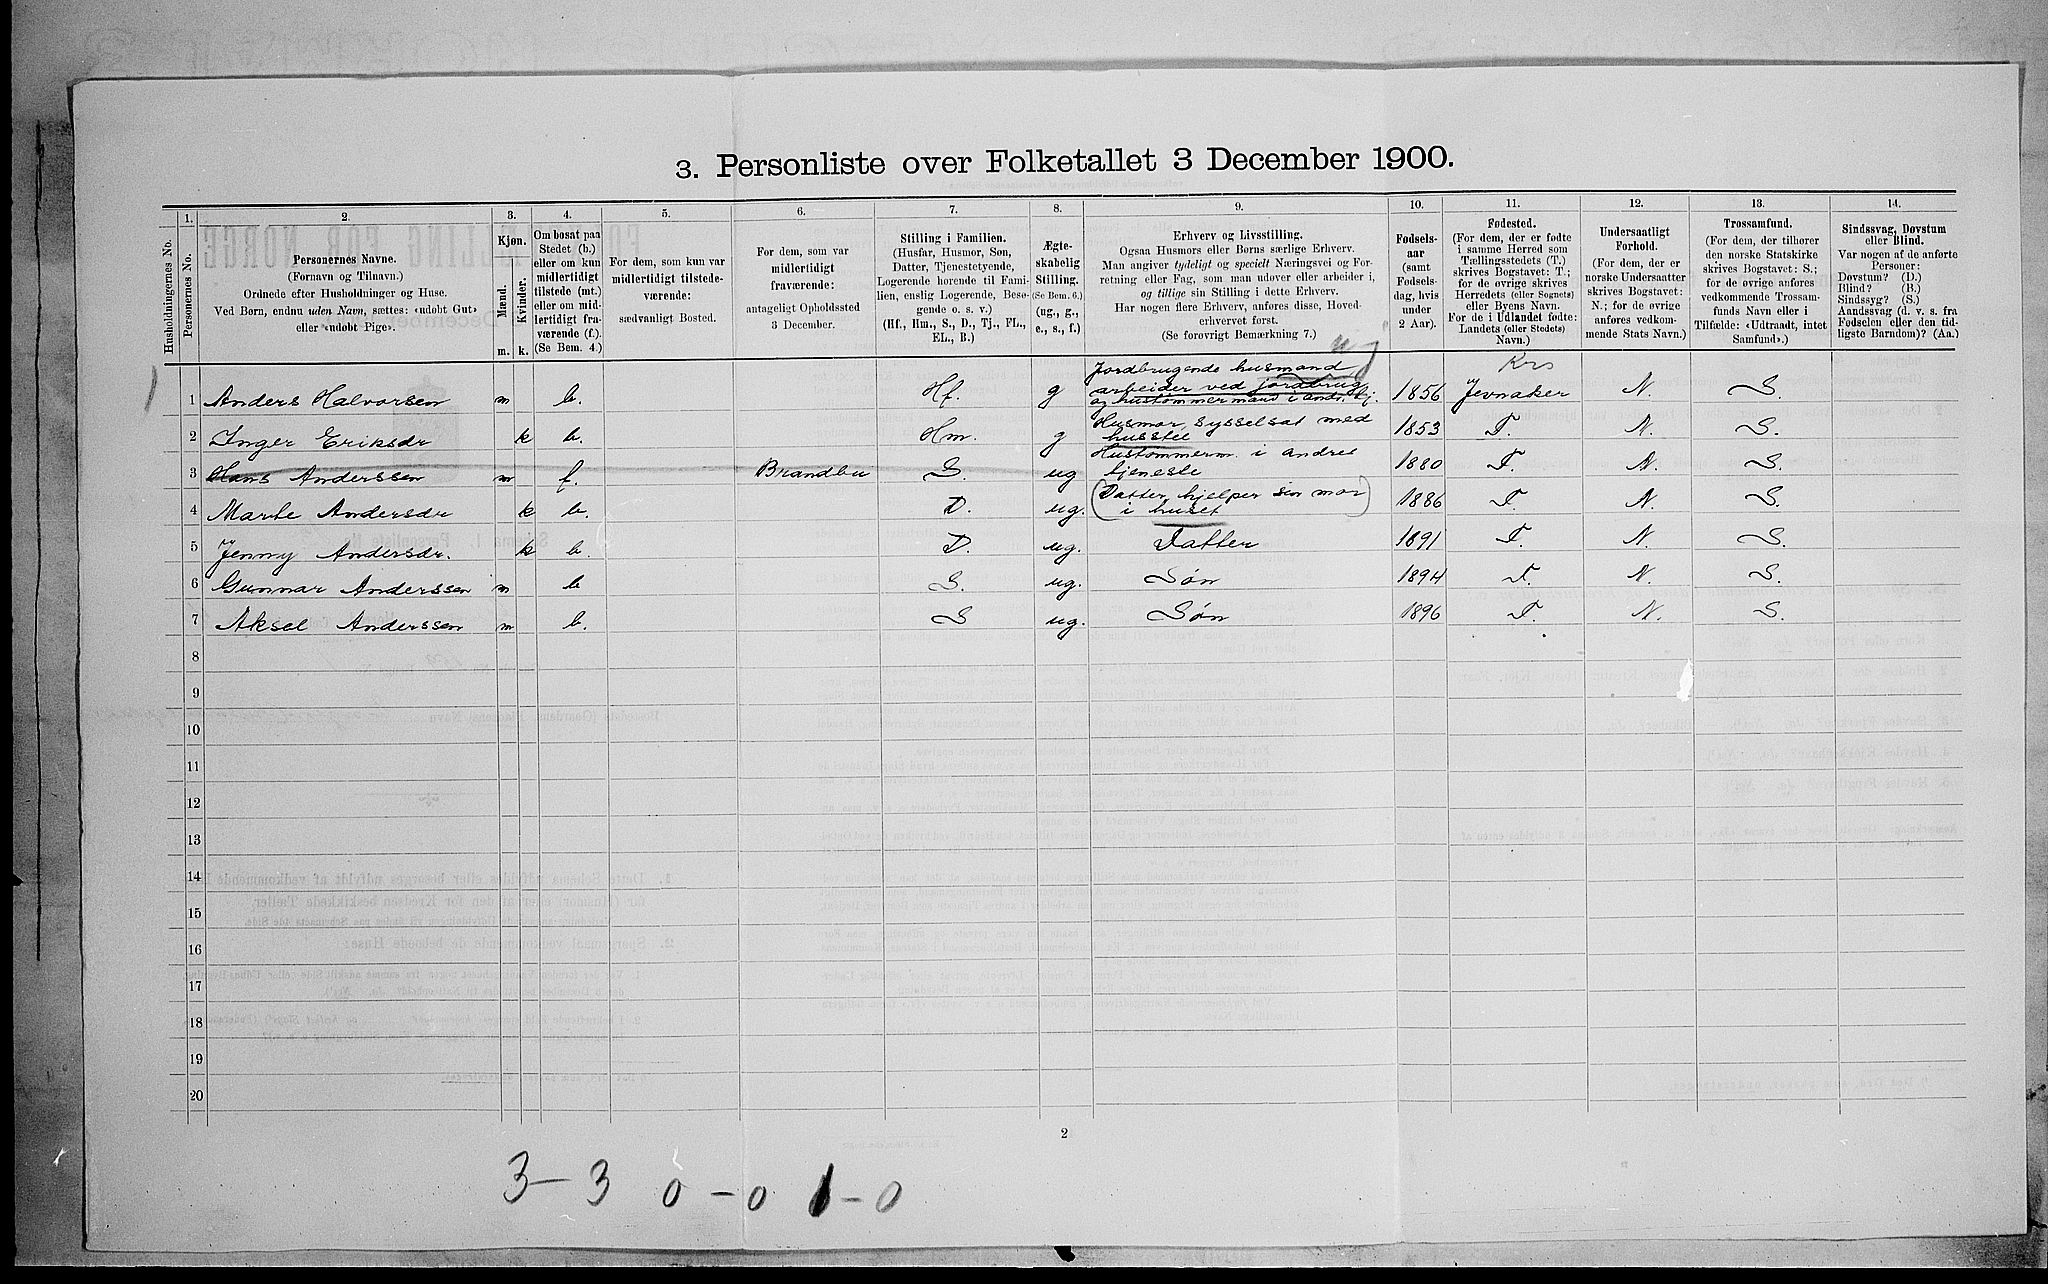 3. Personliste over Folketallet 3 December 1900.
Husholdningernes No.
1.
Personernes No.
2.
Personernes Navne.
(Fornavn og Tilnavn.)
Ordnede efter Husholdninger og Huse.
Ved Børn, endnu uden Navn, sættes: «udøbt Gut»
eller «udøbt Pige».
3.
Kjøn.
Mænd.
Kvinder.
m. k.
4.
Om bosat paa
Stedet (b.)
eller om kun
midlertidigt
tilstede (mt.)
eller om mid-
lertidigt fra-
værende (f.).
(Se Bem. 4.)
5.
For dem, som kun var
midlertidigt tilstede-
værende:
sædvanligt Bosted.
6.
For dem, som var
midlertidigt
fraværende:
antageligt Opholdssted
3 December.
7.
Stilling i Familien.
(Husfar, Husmor, Søn,
Datter, Tjenestetyende,
Logerende hørende til Fami-
lien, enslig Logerende, Besø-
gende o. s. v.)
(Hf., Hm., S., D., Tj., FL.,
EL., B.)
8.
Ægte-
skabelig
Stilling.
(Se Bem. 6.)
(ug., g.,
e., s., f.)
9.
Erhverv og Livsstilling.
Ogsaa Husmors eller Børns særlige Erhverv.
Man angiver tydeligt og specielt Næringsvei og For-
retning eller Fag, som man udøver eller arbeider i,
og tillige sin Stilling i dette Erhverv.
Har nogen flere Erhverv, anføres disse, Hoved-
erhvervet først.
(Se forøvrigt Bemærkning 7.)
10.
Fødsels-
aar
(samt
Fødsels-
dag, hvis
under
2 Aar).
11.
Fødested.
(For dem, der er fødte
i samme Herred som
Tællingsstedets (T.)
skrives Bogstavet: T.;
for de øvrige skrives
Herredets (eller Sognets)
eller Byens Navn.
For de i Udlandet fødte:
Landets (eller Stedets)
Navn.)
12.
Undersaatligt
Forhold.
(For dem, der er
norske Undersaatter
skrives Bogstavet:
N.; for de øvrige
anføres vedkom-
mende Stats Navn.)
13.
Trossamfund.
(For dem, der tilhører
den norske Statskirke
skrives Bogstavet: S.;
for de øvrige anføres
vedkommende Trossam-
funds Navn eller i
Tilfælde: «Udtraadt, intet
Samfund».)
14.
Sindssvag, Døvstum
eller Blind.
Var nogen af de anførte
Personer:
Døvstum? (D.)
Blind? (B.)
Sindssyg? (S.)
Aandssvag (d. v. s. fra
Fødselen eller den tid-
ligste Barndom)? (Aa.)
Jordbrugende husmand Krs
1 1 Anders Halvorsen m b. Hf. g arbeider ved jordbrug 1856 Jevnaker N. S.
og hustømmermand i andr. tj.
2 Inger Eriksdr k b. Hm. g Husmor, sysselsat med 1853 T. N. S.
husstel
3 Hans Anderssen m f. Brandbu S. ug Hustømmerm. i andres 1880 T. N. S.
tjeneste
4 Marte Andersdr k b. D. ug. (Datter, hjelper sin mor 1886 T. N. S.
i huset)
5 Jenny Andersdr. k b. D. ug. Datter 1891 T. N. S.
6 Gunnar Anderssen m b S. ug. Søn 1894 T. N. S.
7 Aksel Anderssen m b. S ug. Søn 1896 T. N. S.
8
9
10
11
12
13
14
15
16
17
18
19
20
2
3 – 3 0 – 0 1 – 0